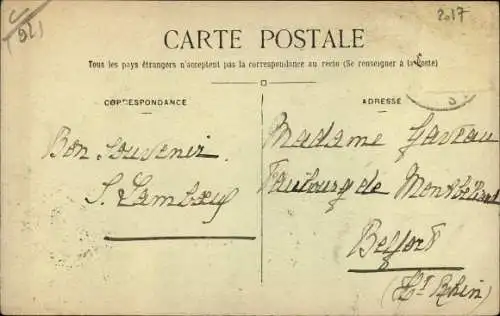 (92)
2017
CARTE POSTALE
Tous les pays étrangers n'acceptent pas la correspondance au recto (Se renseigner à la Poste)
CORRESPONDANCE
ADRESSE
Bon souvenir
Madame Gaveau
Faubourg de Montbéliard
Belfort
(Ht Rhin)